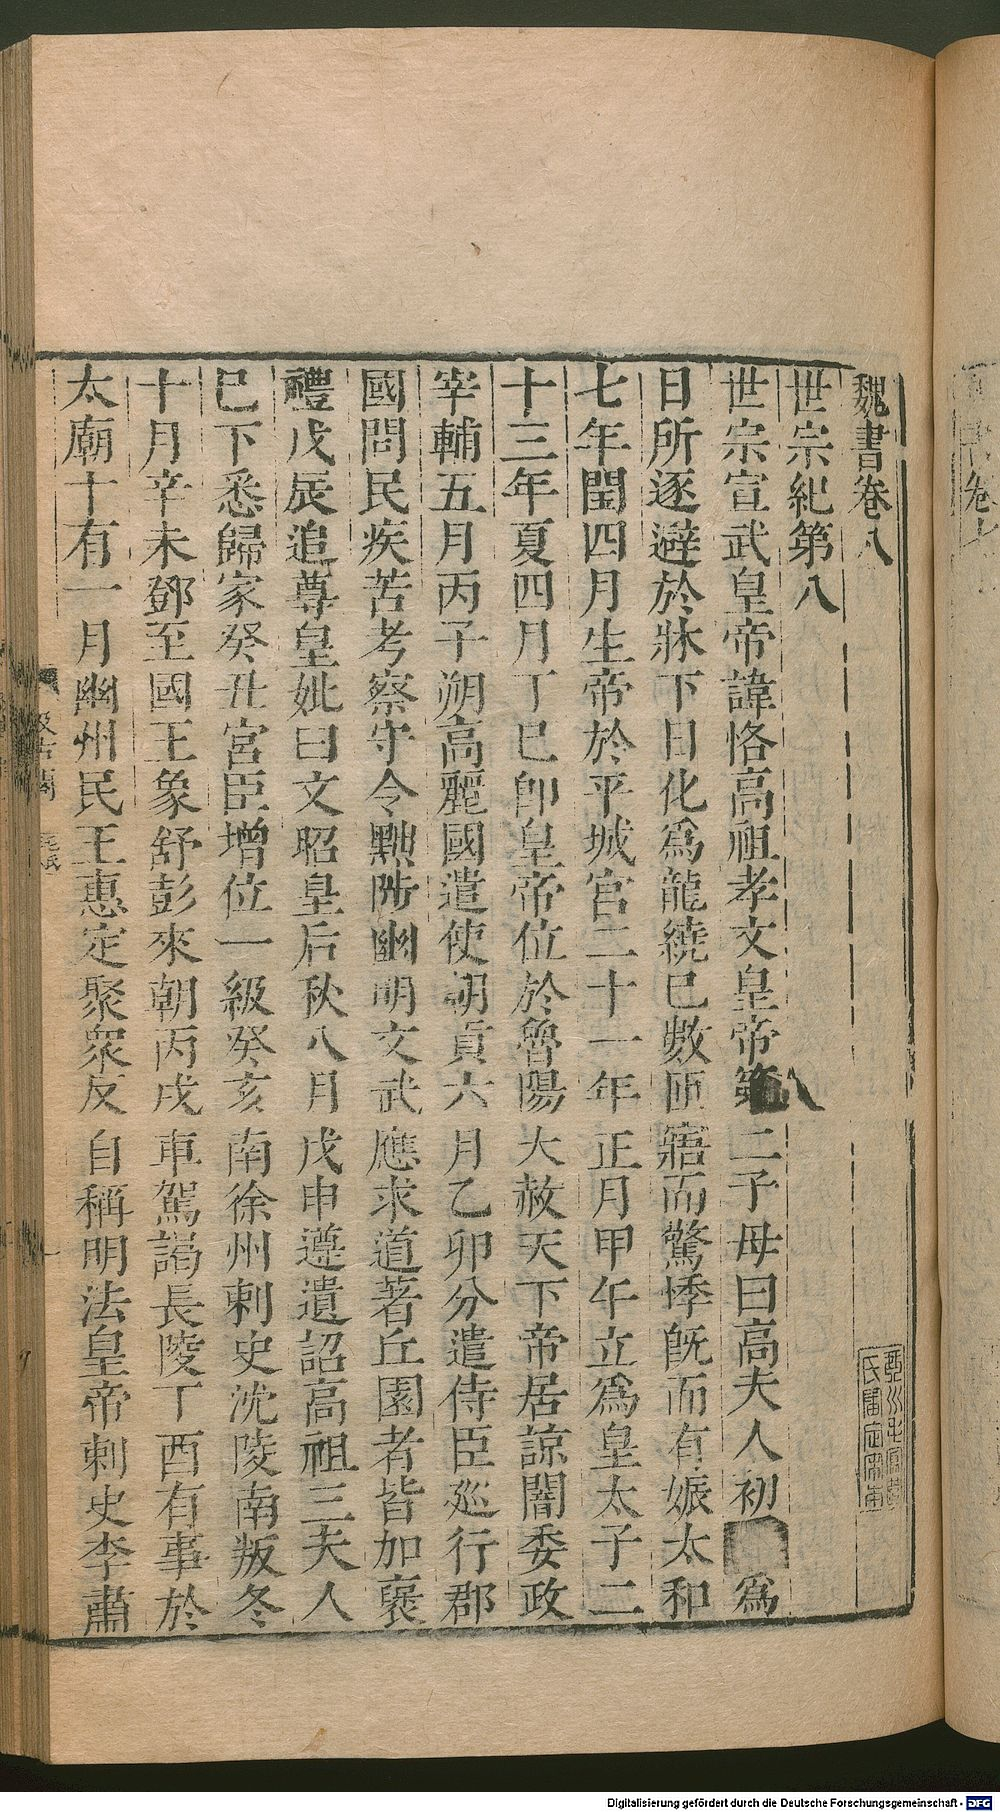 魏書卷八
世宗紀第八
世宗宣武皇帝諱恪高祖孝文皇帝第二子母曰高夫人初 爲
日所逐避於牀下日化爲龍繞己數匝寤而驚悸旣而有娠太和
七年閏四月生帝於平城宮二十一年正月甲午立爲皇太子二
十三年夏四月丁巳卽皇帝位於魯陽大赦天下帝居諒闇委政
宰輔五月丙子朔高麗國遣使朝貢六月乙卯分遣侍臣巡行郡
國問民疾苦考察守令黜陟幽明文武應求道著丘園者皆加襃
禮戊辰追尊皇妣曰文昭皇后秋八月戊申遵遺詔高祖三夫人
已下悉歸家癸丑宮臣增位一級癸亥南徐州刺史沈陵南叛冬
十月辛未鄧至國王象舒彭來朝丙戌車駕謁長陵丁酉有事於
太廟十有一月幽州民王惠定聚衆反自稱明法皇帝刺史李肅
Digitalisierung gefördert durch die Deutsche Forschungsgemeinschaft - DFG